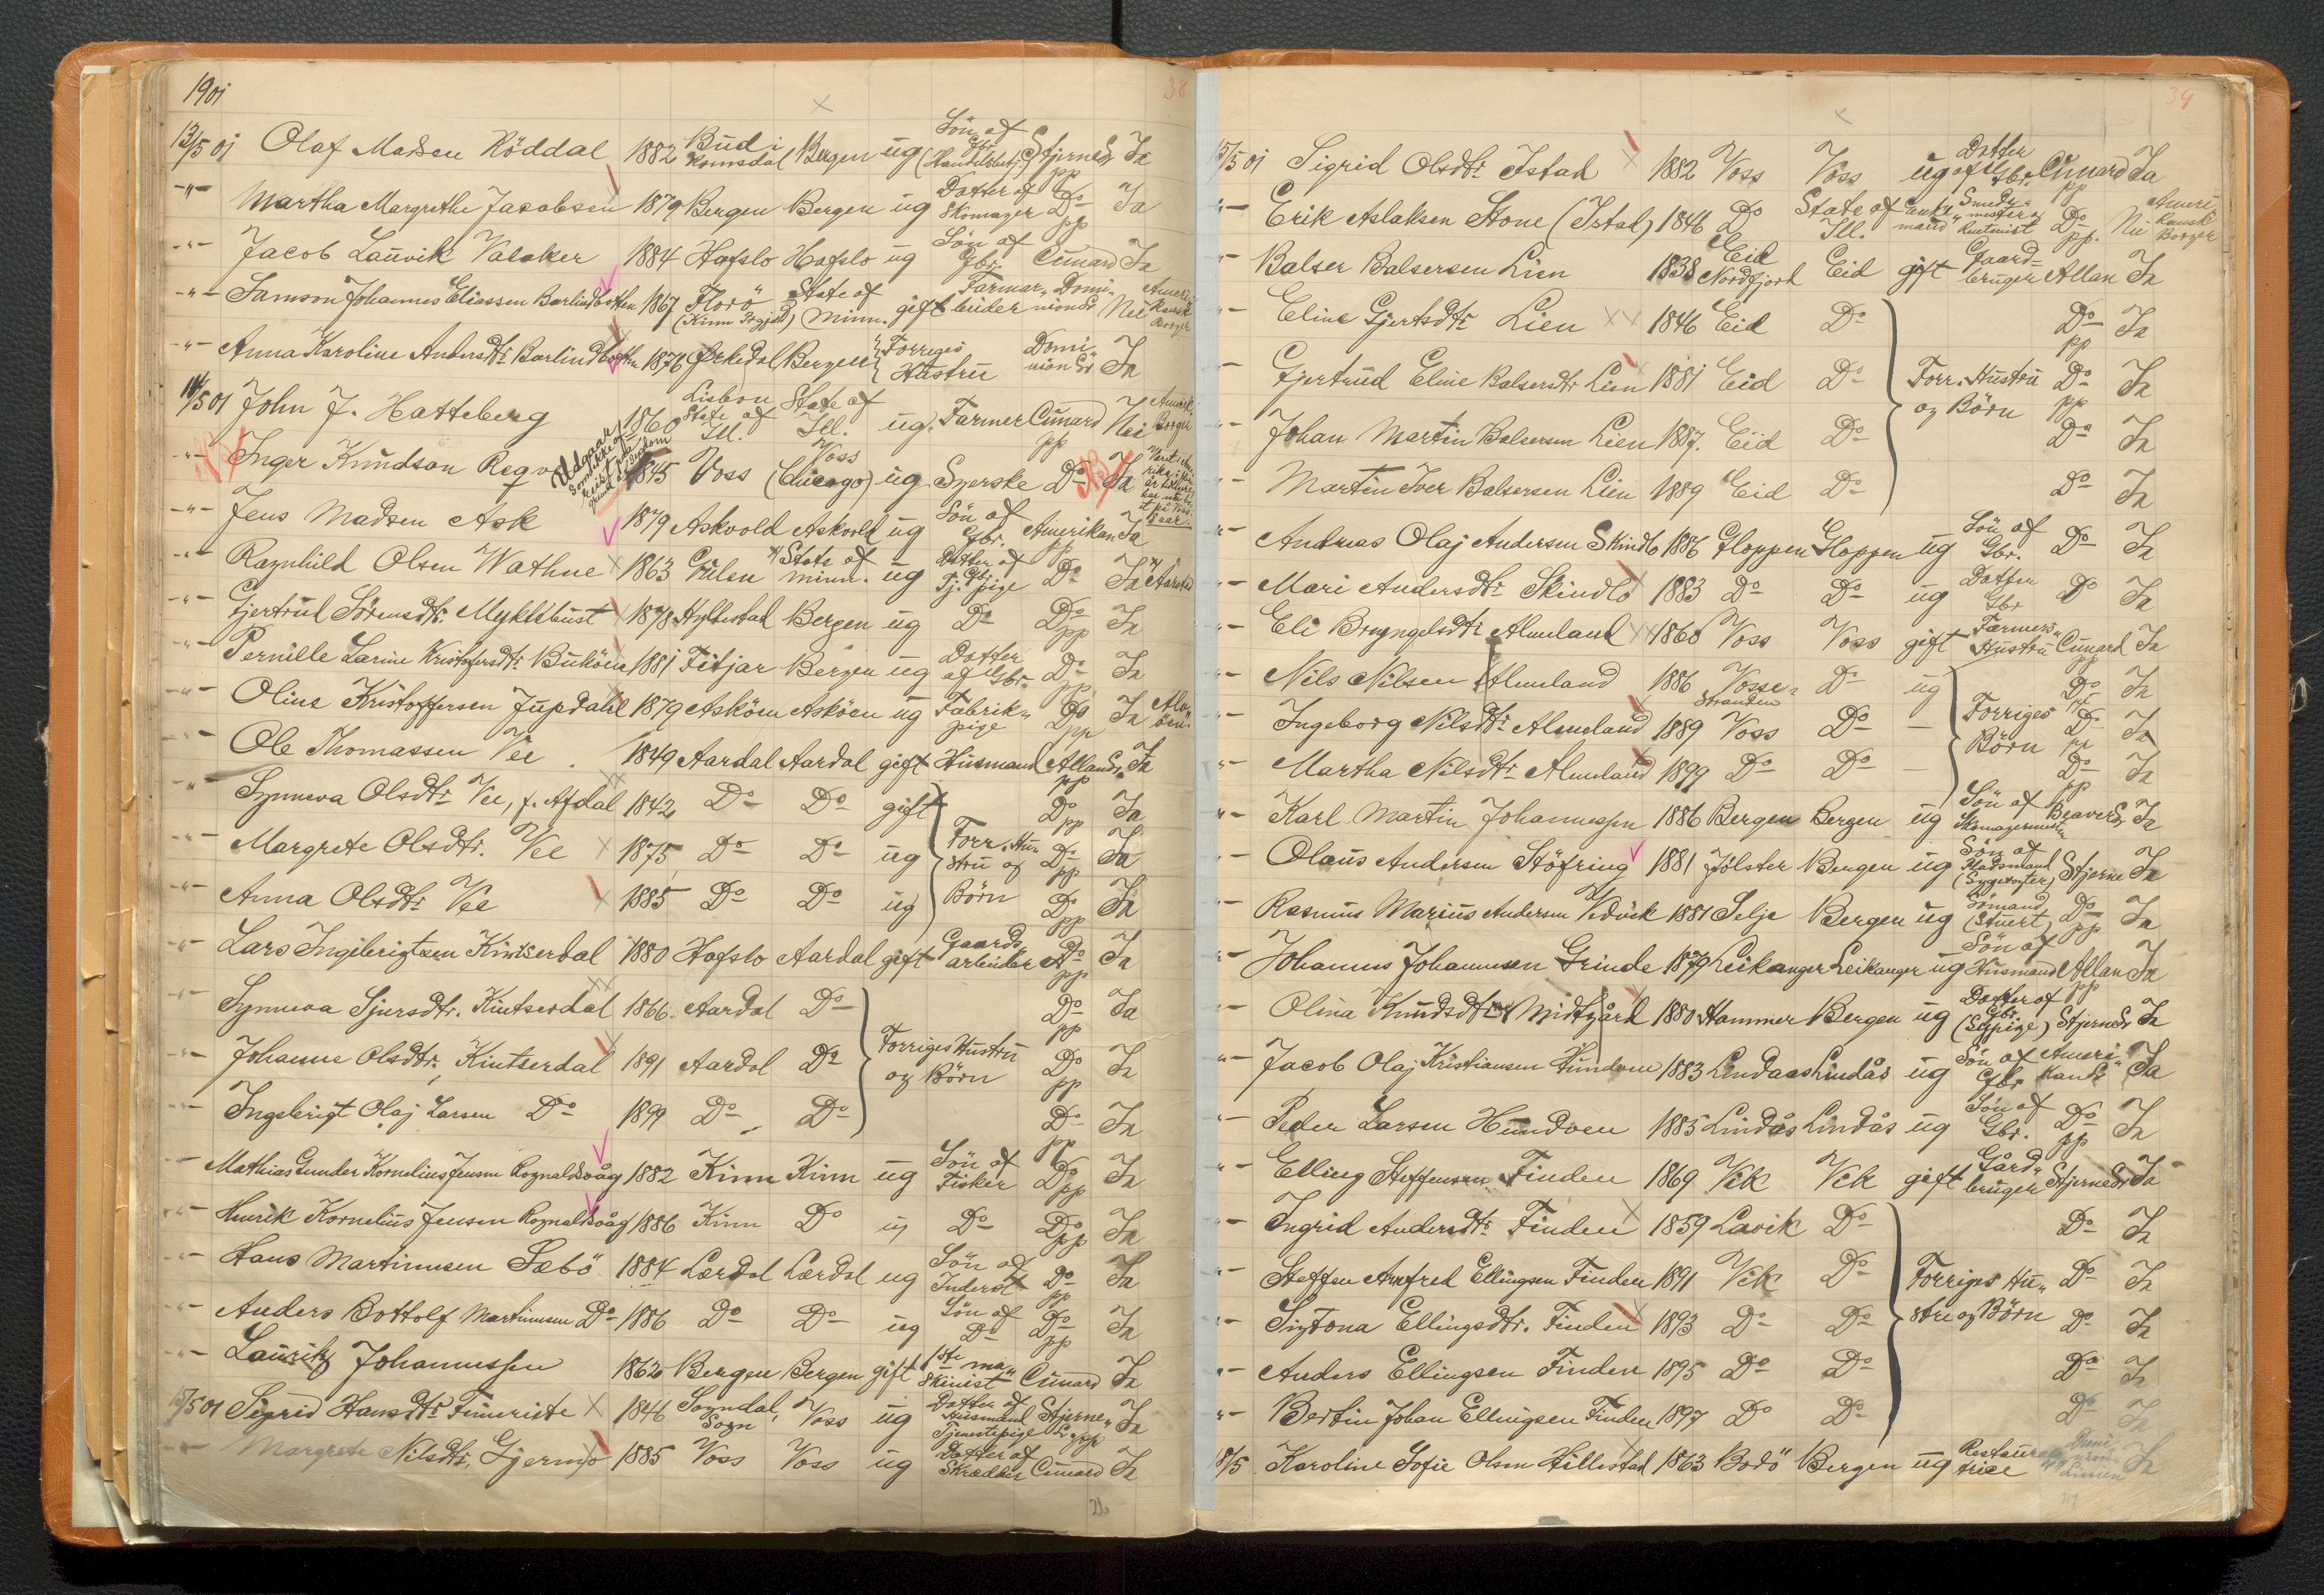 1901
38
13/5 01 Olaf Madsen Röddal 1882 Bud i Romsdal Bergen ug Sön af Gbr. (Handelsbetj.) Stjerne Ja
-"- Martha Margrethe Jacobsen 1879 Bergen Bergen ug Datter af Skomager Do pp Ja
-"- Jacob Lauvik Valaker 1884 Hafslo Hafslo ug Sön af Gbr. Cunard Ja
-"- Samson Johannes Eliassen Barlindbotten 1867 Florö (Kinn Prgjæld) State of Minn. gift Farmar- Domi- nion Nei Ameri- kansk Borger
-"- Anna Karoline Andersdtr. Barlindbotten 1876 Orkedal Bergen Forriges Hustru Domi nion Ja
14/5 01 John J. Hatteberg 1860 Lisbon State of Ill. State of Ill. ug. Farmer Cunard pp Nei Amerik. Borger
-"- Inger Knudson Reqve 1845 Voss Voss (Chicago) ug Syerske Do Ja
-"- Jens Madsen Ask 1879 Askvold Askvold ug Sön af Gbr. Amerikan pp Ja
-"- Ragnhild Olsen Wathne 1863 Evilen State of minn. ug Datter af Gbr. Tj. pige Do Ja Aarstad
-"- Gjertrud Sörensdtr. Myklebust 1878 Hyllestad Bergen ug Do Do pp Ja
-"- Pernille Larine Kristofersdtr. Buköen 1881 Fitjar Bergen ug Datter af Gbr. Do pp Ja
-"- Oline Kristoffersen Jupdahl 1879 Asköen Asköen ug Fabrik- pige Do pp Ja
-"- Ole Thomassen Vee 1849 Aardal Aardal gift Husmand Allan pp Ja
-"- Synneva Olsdtr. Vee, f. Afdal 1842 Do Do gift Do pp Ja
-"- Margrete Olsdtr. Vee 1875 Do Do ug Forr. Hu- stru og Do pp Ja
-"- Anna Olsdtr. Vee 1885 Do Do ug Börn Do pp Ja
-"- Lars Ingebrigtsen Kintserdal 1880 Hafslo Aardal gift Gaards- arbeider Do pp Ja
-"- Synneva Sjursdtr. Kintserdal 1866 Aardal Do Do pp Ja
-"- Johanne Olsdtr. Kintserdal 1891 Aardal Do Forriges Hustru og Börn Do pp Ja
-"- Ingebrigt Olaj Larsen Do 1899 Do Do Do pp Ja
-"- Mathias Gunder Kornelius Jensen Rognaldsvåg 1882 Kinn Kinn ug Sön af Fisker Do pp Ja
-"- Henrik Kornelius Jensen Rognaldsvåg 1886 Kinn Do ug Do Do pp Ja
-"- Hans Martinusen Sæbö 1884 Lærdal Lærdal ug Sön af Inderst Do pp Ja
-"- Anders Bottolf Martinusen Do 1886 Do Do ug Sön af Do Do pp Ja
-"- Lauritz Johannessen 1862 Bergen Bergen gift 1ste ma- skinist Cunard Ja
15/5 01 Sigrid Hansdtr. Fimreite 1846 Sogndal, Sogn Voss ug Datter af Husmand Tjenestepige Stjerne- pp Ja
-"- Margrete Nilsdtr. Gjermo 1885 Voss Voss ug Datter af Skrædder Cunard Ja
39
15/5 01 Sigrid Olsdtr. Istad 1882 Voss Voss ug Datter af Gbr. Cunard pp Ja
-"- Erik Aslaksen Stone (Istad) 1846 Do State of Ill. Enke- mand Do pp. Nei Ameri kansk Borger
-"- Balser Balsersen Lien 1838 Eid Nordfjord Eid gift Gaard- bruger Allan Ja
-"- Eline Gjertsdtr. Lien 1846 Eid Do Do pp Ja
-"- Gjertrud Eline Balsersdtr. Lien 1881 Eid Do Forr. Hustru og Börn Do pp Ja
-"- Johan Martin Balsersen Lien 1887. Eid Do Do Ja
-"- Martin Iver Balsersen Lien 1889 Eid Do Do Ja
-"- Andreas Olaj Andersen Skindlo 1886 Gloppen Gloppen ug Sön af Gbr. Do Ja
-"- Mari Andersdtr. Skindlo 1883 Do Do ug Datter Gbr Do Ja
-"- Eli Bryngelsdtr. Almeland 1860 Voss Voss gift Farmers- Hustru Cunard Ja
-"- Nils Nilsen Almeland 1886 Vosse- Stranden Do ug Do Ja
-"- Ingeborg Nilsdtr. Almeland 1889 Voss Do - Forriges Börn Do pp Ja
-"- Martha Nilsdtr. Almeland 1899 Do Do - Do pp Ja
-"- Karl Martin Johannessen 1886 Bergen Bergen ug Sön af Skomagermester Beaver Ja
-"- Olaus Andersen Stöfring 1881 Jölster Bergen ug Sön af Pladsmand (Sygevogter) Stjerne Ja
-"- Rasmus Marius Andersen Vedvik 1881 Selje Bergen ug Sömand (Stuert) Do pp Ja
-"- Johannes Johannesen Grinde 1879 Leikanger Leikanger ug Sön af Husmand Allan pp Ja
-"- Olina Knudsdtr. Midtgård 1880 Hammer Bergen ug Datter af Gbr. Stjerne Ja
-"- Jacob Olaj Kristiansen Hundven 1883 Lindaas Lindås ug Sön af Gbr Ameri- kansk Ja
-"- Peder Larsen Hundven 1885 Lindås Lindås ug Sön af Gbr. Do pp Ja
-"- Elling Steffensen Finden 1869 Vik Vik gift Gård- bruger Stjerne Ja
-"- Ingrid Andersdtr. Finden 1859 Lavik Do Do Ja
-"- Steffen Arnfred Ellingsen Finden 1891 Vik Do Forriges Hu- Do Ja
-"- Sigtona Ellingsdtr. Finden 1893 Do Do stru og Börn Do Ja
-"- Anders Ellingsen Finden 1895 Do Do Do Ja
-"- Bertin Johan Ellingsen Finden 1897 Do Do Do Ja
18/5 Karoline Sofie Olsen Hillestad 1863 Bodö Bergen ug Restaura- trice Domi- nion Linien Ja